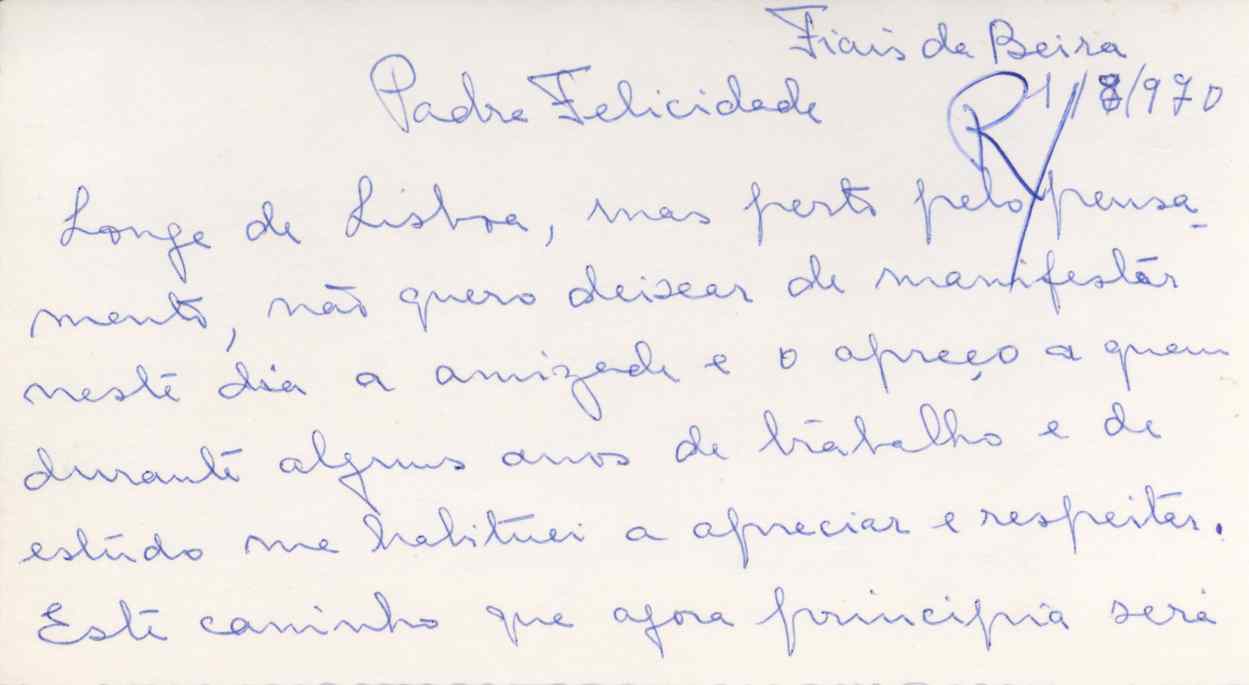 Fiais da Beira
1/8/970
Padre Felicidade
R/
Longe de Lisboa, mas perto pelo pensa-
mento, não quero deixar de manifestar
neste dia a amizade e o apreço a quem
durante alguns anos de trabalho e de
estudo me habituei a apreciar e respeitar.
Este caminho que agora principia será